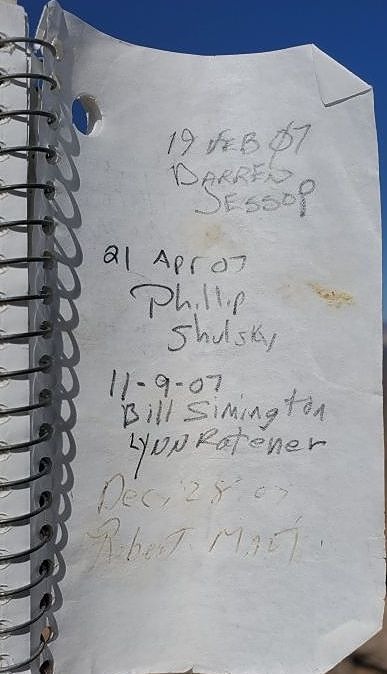 19 FEB 07
DARREN
JESSOP
21 Apr 07
Phillip
Shulsky
11-9-07
Bill Simington
LYNN Ratener
Dec, 28 07
Robert